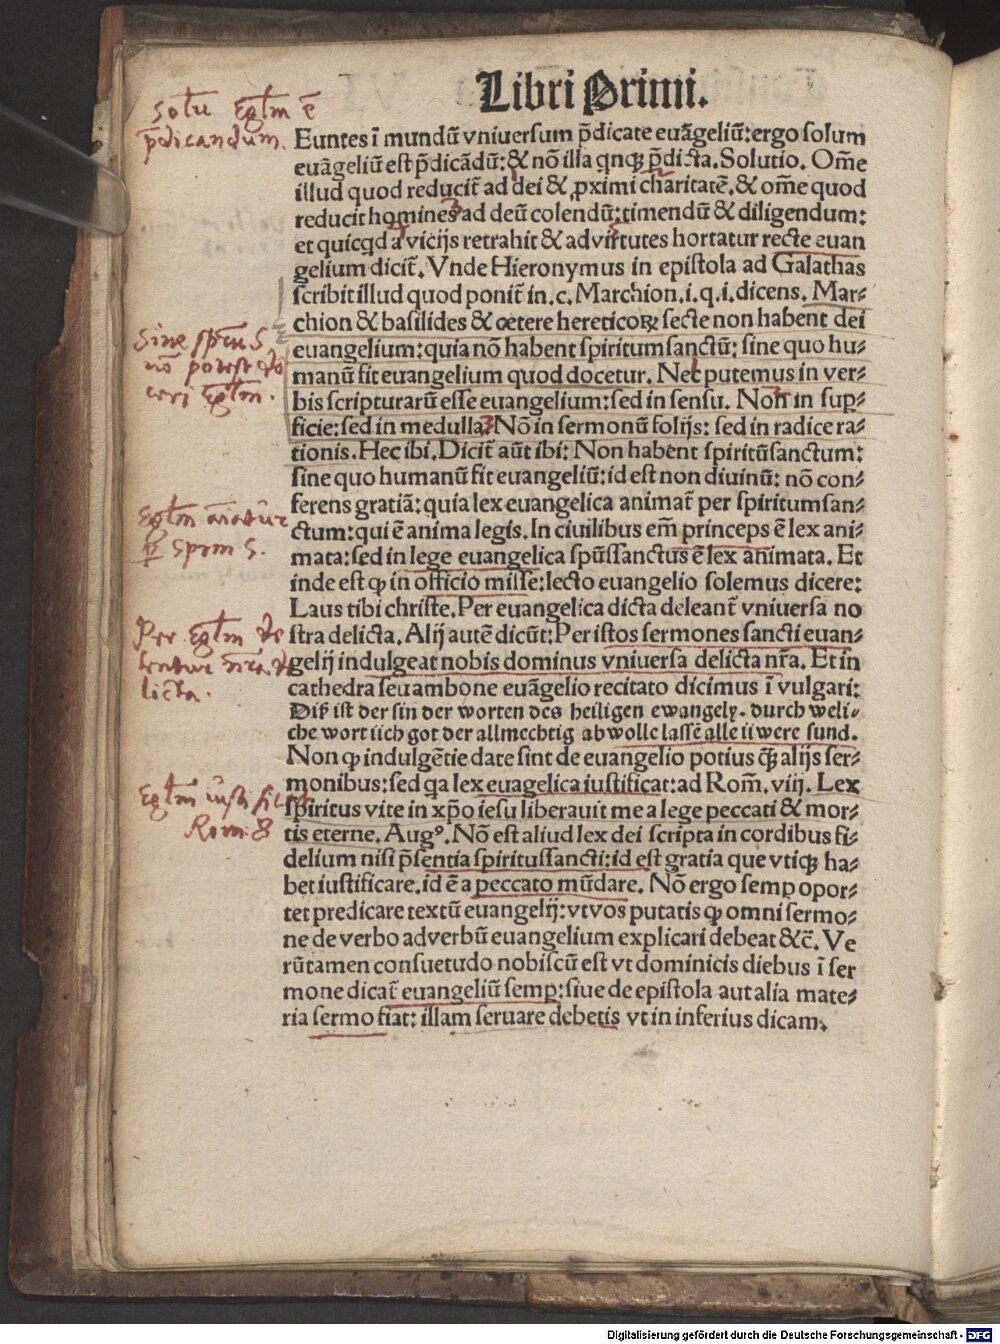 Libri Primi.
Solū Eglm̄ ē
p̄dicandum.
Euntes ī mundū vniuersum p̄dicate euāgeliū: ergo solum
euāgeliū est p̄dicādū: & nō illa qnqꝫ p̄dicta. Solutio. Om̄e
illud quod reducit̄ ad dei & ꝓximi charitatē. & om̄e quod
reducit homines ad deū colendū: timendū & diligendum:
et quicqd a vicijs retrahit & ad virtutes hortatur recte euan
gelium dicit̄. Vnde Hieronymus in epistola ad Galathas
scribit illud quod ponit̄ in.c. Marchion.i.q.i.dicens. Mar⸗
chion & basilides & cetere hereticoꝝ secte non habent dei
euangelium: quia nō habent spiritum sanctū: sine quo hu⸗
manū fit euangelium quod docetur. Nec putemus in ver⸗
bis scripturarū esse euangelium: sed in sensu. Non in suꝑ⸗
ficie: sed in medulla. Nō in sermonū folijs: sed in radice ra⸗
tionis. Hec ibi. Dicit̄ aūt ibi: Non habent spiritūsanctum:
sine quo humanū fit euangeliū: id est non diuinū: nō con⸗
ferens gratiā: quia lex euangelica animat̄ per spiritumsan⸗
ctum: qui ē anima legis. In ciuilibus em̄ princeps ē lex ani⸗
mata: sed in lege euangelica spūssanctus ē lex animata. Et
inde est ꝙ in officio misse: lecto euangelio solemus dicere:
Laus tibi christe. Per euangelica dicta deleant̄ vniuersa no
stra delicta. Alij autē dicūt: Per istos sermones sancti euan⸗
gelij indulgeat nobis dominus vniuersa delicta nr̄a. Et in
cathedra seu ambone euāgelio recitato dicimus ī vulgari:
Diß ist der sin der worten des heiligen ewangely. durch weli⸗
che wort üch got der allmechtig ab wolle lassē alle üwere sund.
Non ꝙ indulgētie date sint de euangelio potius q̄ꝫ alijs ser⸗
monibus: sed qa lex euagelica iustificat: ad Rom̄. viij. Lex
spiritus vite in xp̄o iesu liberauit me a lege peccati & mor⸗
tis eterne. Augꝰ. Nō est aliud lex dei scripta in cordibus fi⸗
delium nisi p̄sentia spiritussancti: id est gratia que vtiqꝫ ha⸗
bet iustificare. id ē a peccato mūdare. Nō ergo semꝑ opor⸗
tet predicare textū euangelij: vt vos putatis ꝙ omni sermo⸗
ne de verbo ad verbū euangelium explicari debeat &c̄. Ve
rūtamen consuetudo nobiscū est vt dominicis diebus ī ser
mone dicat̄ euangeliū semꝑ: siue de epistola aut alia mate⸗
ria sermo fiat: illam seruare debetis vt in inferius dicam.
Sine spūu S
nō potest do
ceri Eglm̄.
Eglm̄ aīatur
ꝑ spm̄ S.
Per Eglm̄ de
lentur nr̄a de
licta.
Eglm̄ iustificat
Rom. 8
Digitalisierung gefördert durch die Deutsche Forschungsgemeinschaft - DFG